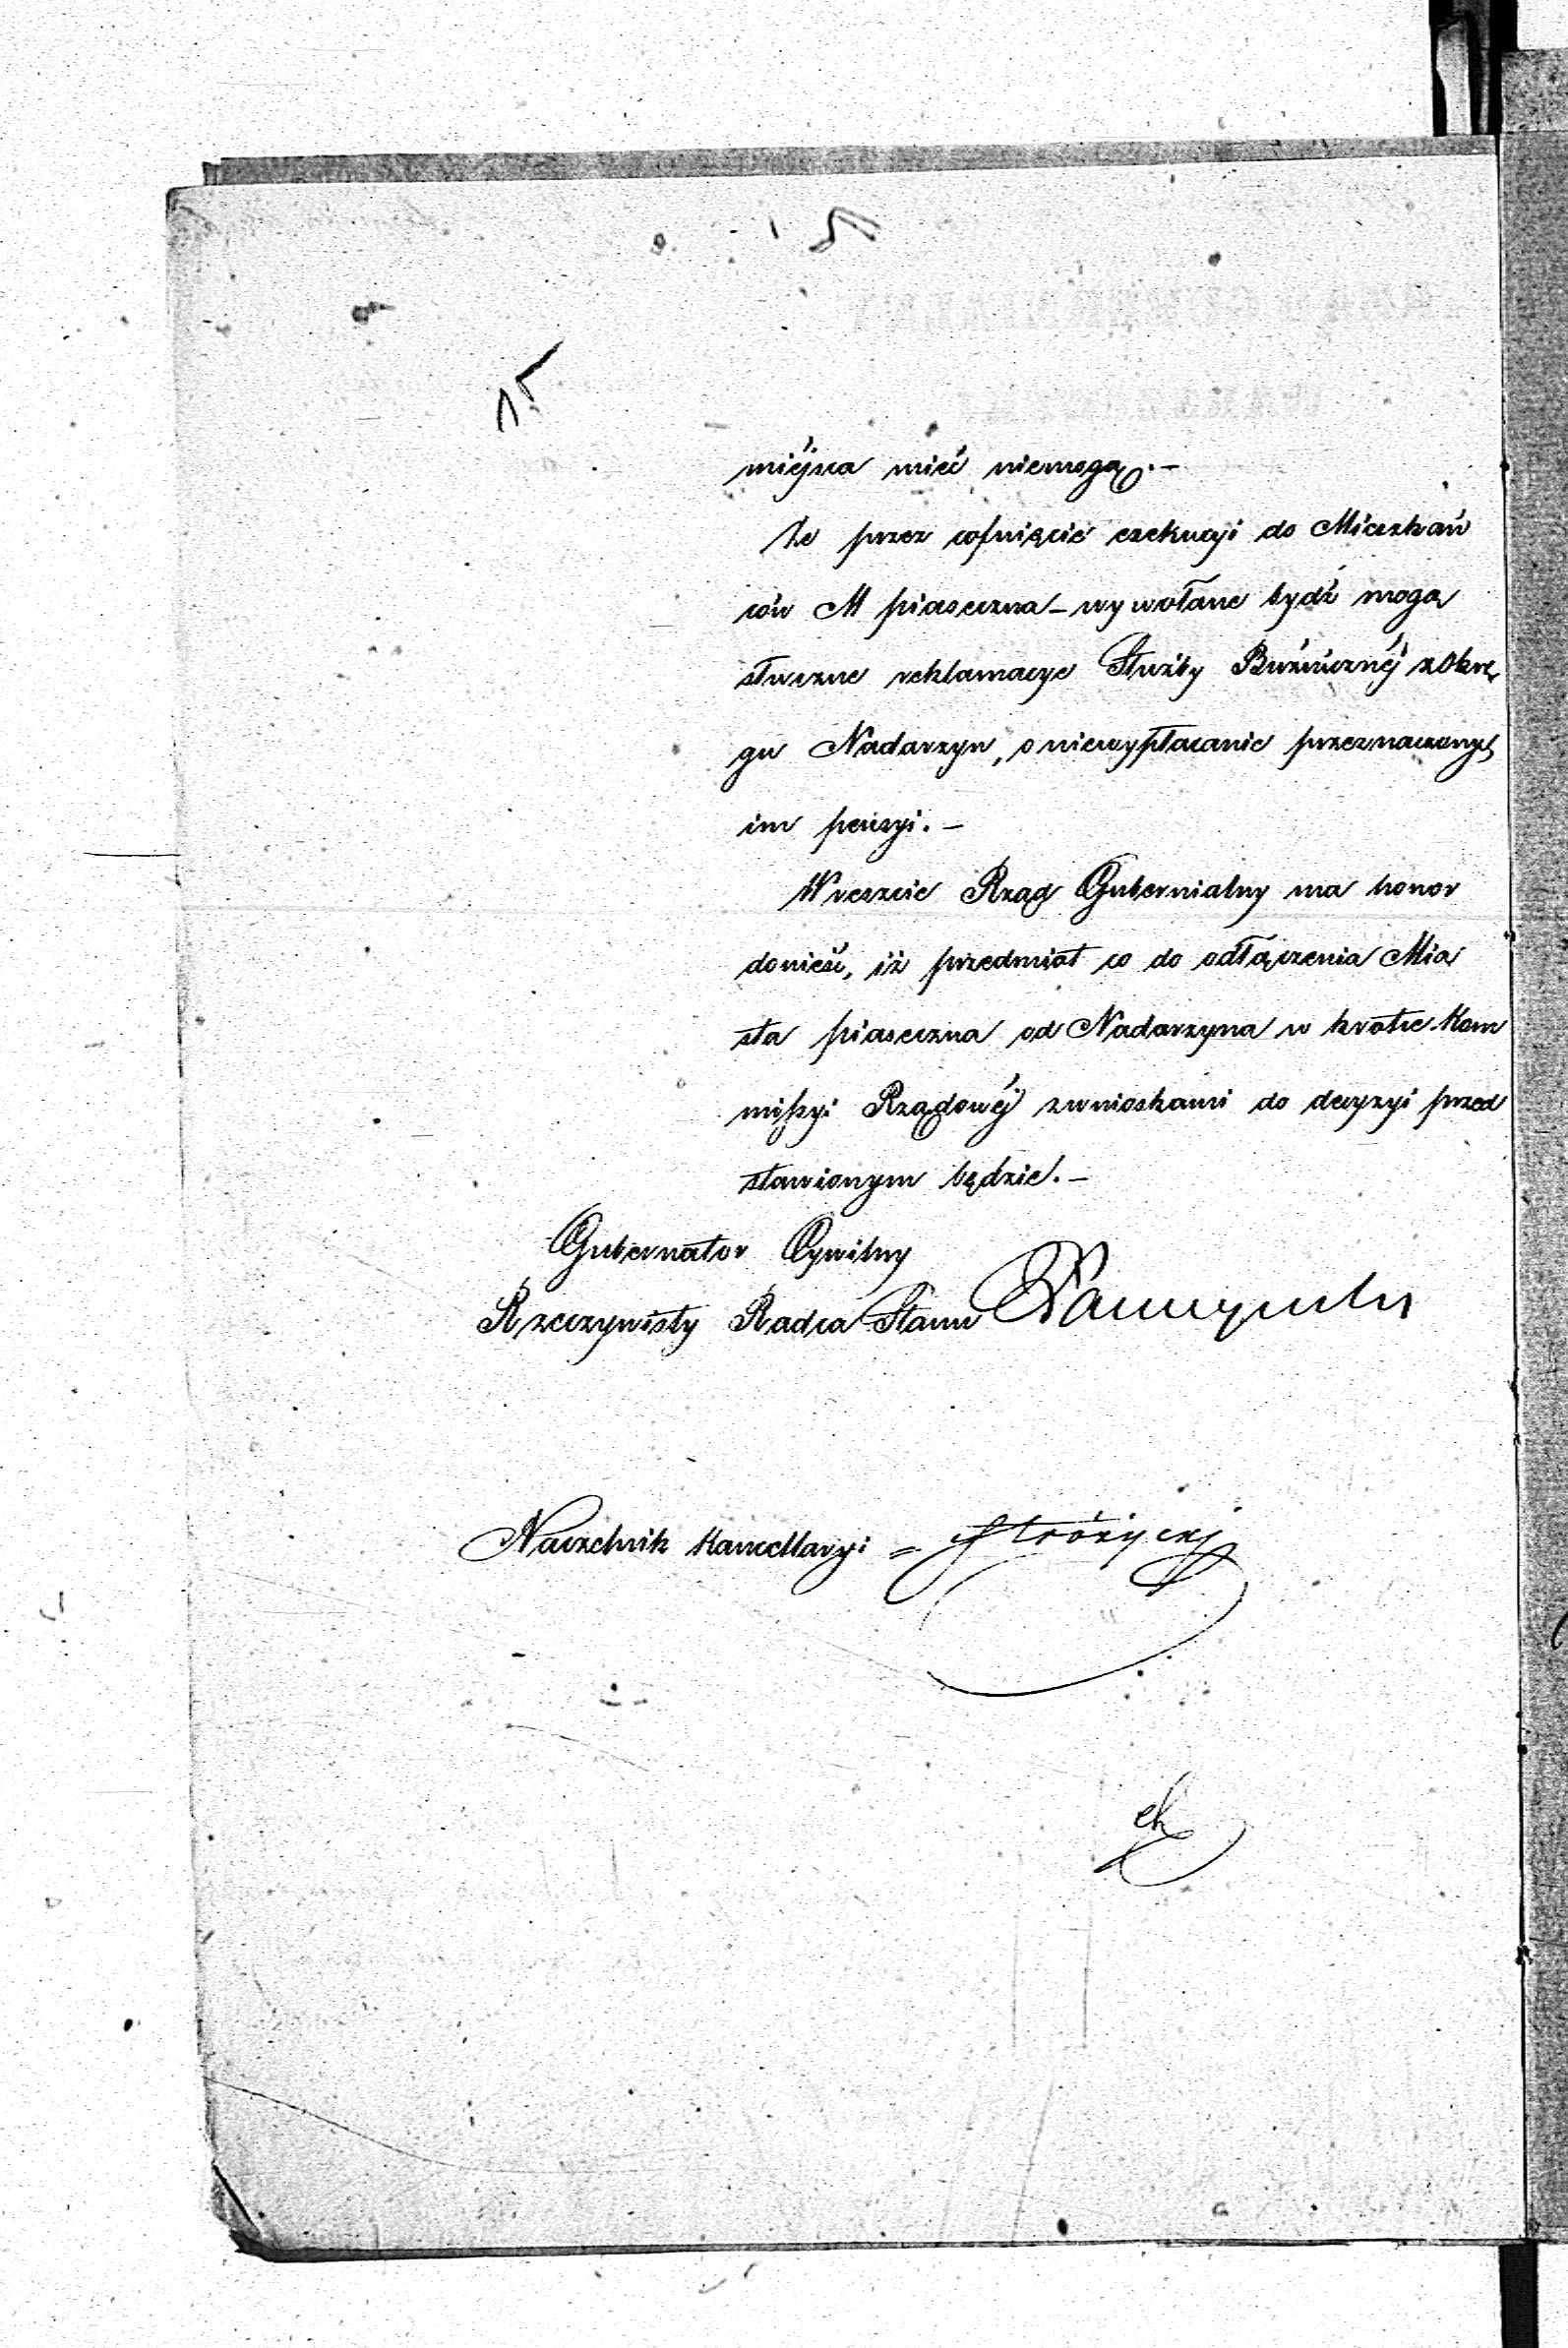 15
miéjsca mieć niemogą.—
Że przez cofnięcie exekucyi do Mieszkań
ców M Piaseczna – wywołane bydź mogą
słuszne reklamacye Służby Bużniczněj z Okrę
gu Nadarzyn, o niewypłacanie przeznaczonych
im pensyi.—
Wreszcie Rząd Gubernialny ma honor
donieść, iż przedmiot co do odłączenia Mia
sta Piaseczna od Nadarzyna w krotce Kom
missyi Rządowéj z wnioskami do decyzyi przed
stawionym będzie.—
Gubernator Cywilny
Rzeczywisty Radca Stanu
Naczelnik Kancellaryi